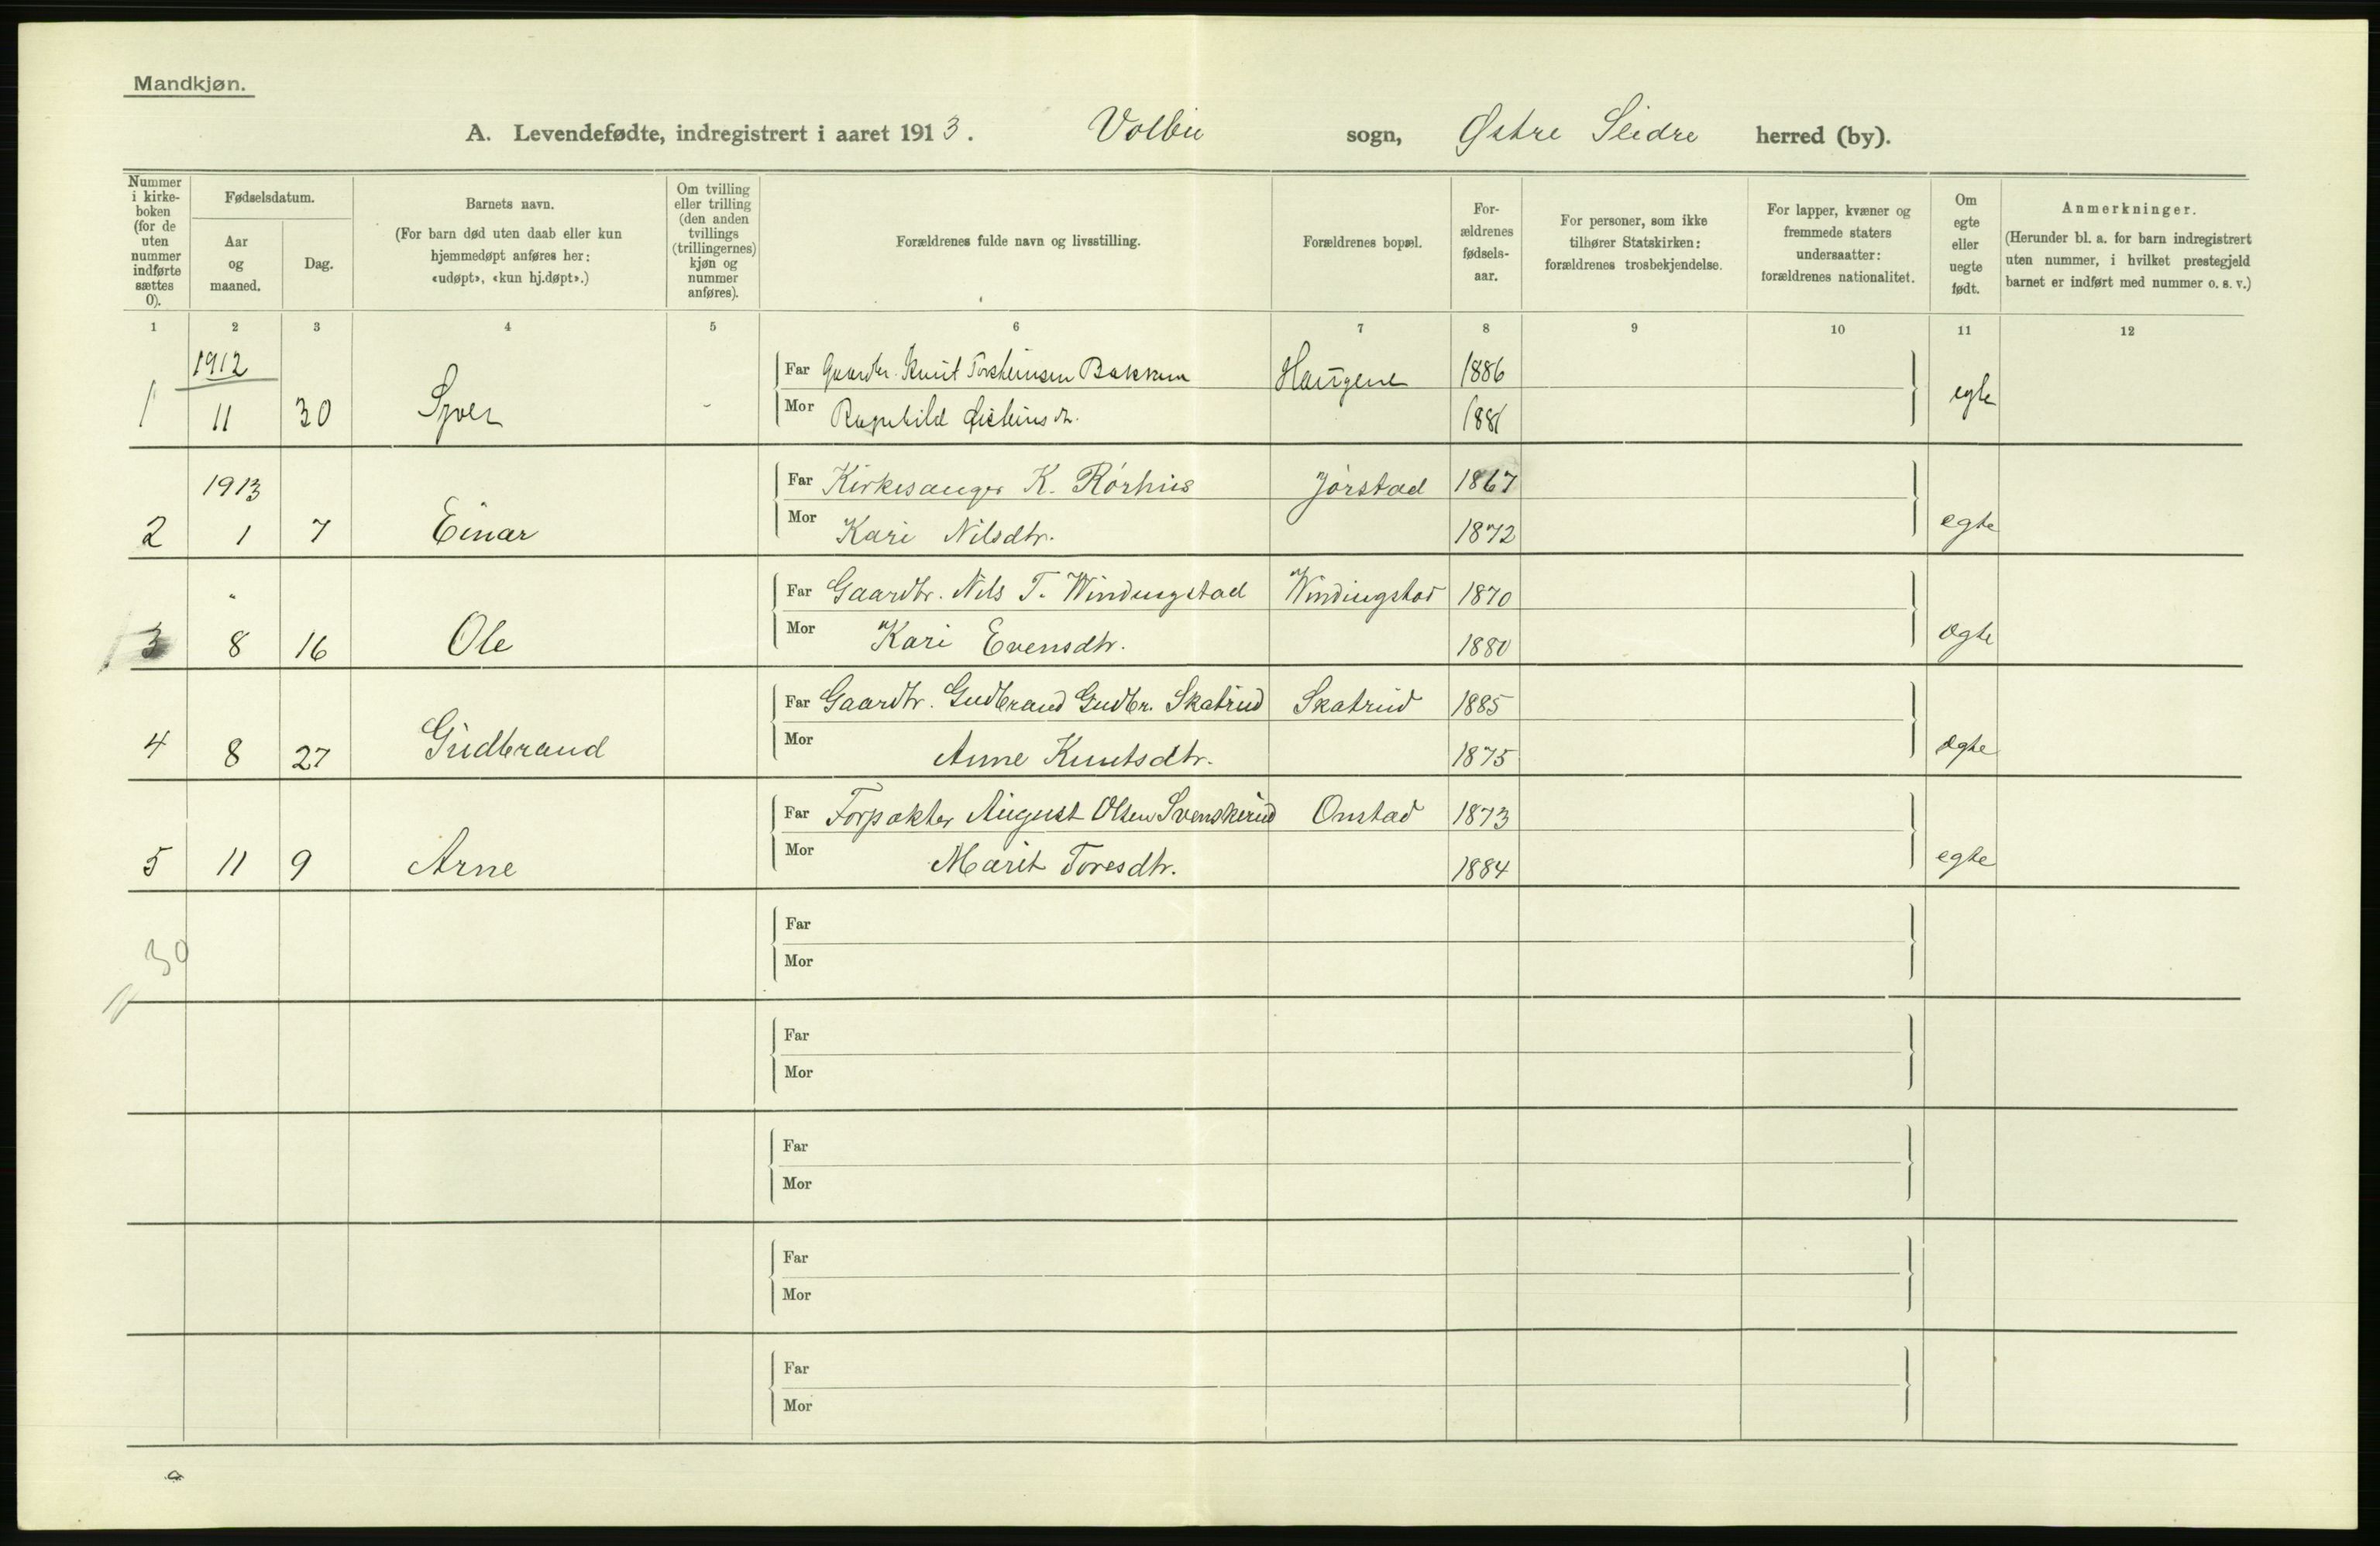 Mandkjøn.
A. Levendefødte, indregistrert i aaret 1913. Volbu sogn, Østre Slidre herred (by).
Nummer i kirke-boken (for de uten nummer indførte sættes 0).
Fødselsdatum.
Aar og maaned.
Dag.
Barnets navn.
(For barn død uten daab eller kun hjemmedøpt anføres her: «udøpt», «kun hj.døpt».)
Om tvilling eller trilling (den anden tvillings (trillingernes) kjøn og nummer anføres).
Forældrenes fulde navn og livsstilling.
Forældrenes bopæl.
For-ældrenes fødsels-aar.
For personer, som ikke tilhører Statskirken: forældrenes trosbekjendelse.
For lapper, kvæner og fremmede staters undersaatter: forældrenes nationalitet.
Om egte eller uegte født.
Anmerkninger.
(Herunder bl. a. for barn indregistrert uten nummer, i hvilket prestegjeld barnet er indført med nummer o. s. v.)
1 2 3 4 5 6 7 8 9 10 11 12
1912
Far Gaardbr. Knut Torsteinsen Bakkum Haugene 1886
1 11 30 Syver - egte
Mor Ragnhild 1881
1913
Far Kirkesanger K. Rørhus Jørstad 1867
2 1 7 Einar egte
Mor Kari Nilsdtr. 1872
"
Far Gaardbr. Nils T. Windingstad Windingstad 1870
3 8 16 Ole egte
Mor Kari Evensdtr. 1880
Far Gaardbr. Gudbrand Gudbr. Skatrud Skatrud 1885
4 8 27 Gudbrand egte
Mor Anne Knutsdtr. 1875
Far Forpakter August Olsen Svenskerud Onstad 1873
5 11 9 Arne egte
Mor Marit Toresdtr. 1884
Far
30
Mor
Far
Mor
Far
Mor
Far
Mor
Far
Mor